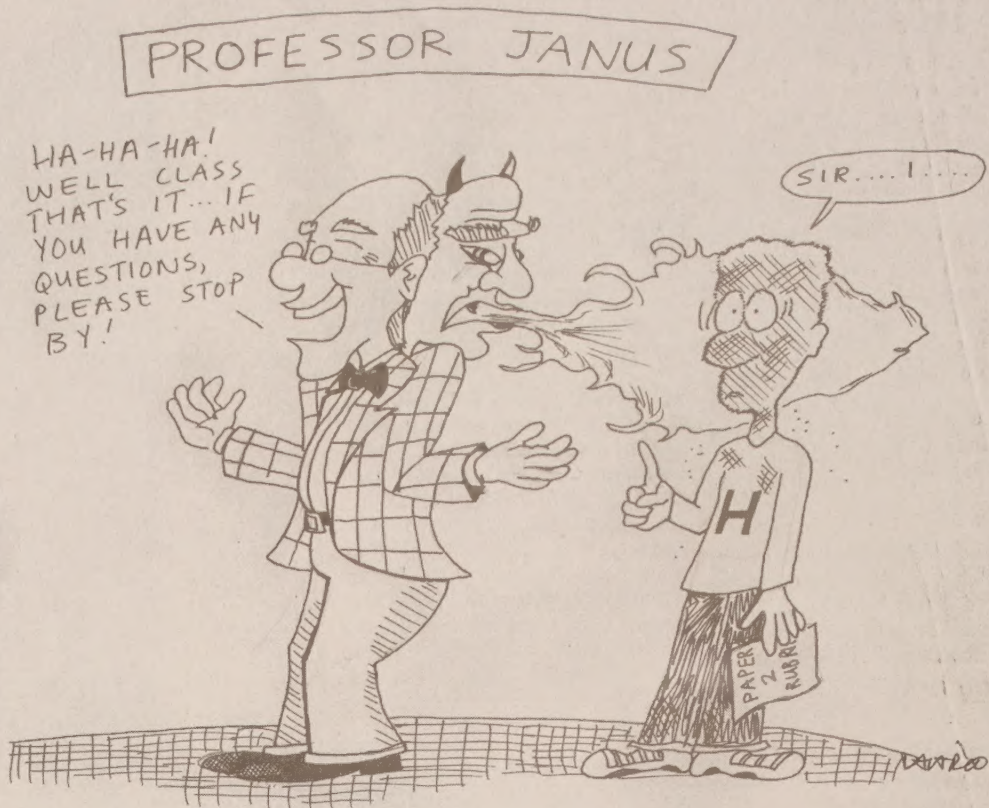 PROFESSOR JANUS
HA-HA-HA!
WELL CLASS
THAT'S IT... IF
YOU HAVE ANY
QUESTIONS,
PLEASE STOP
BY!
SIR.... I....
H
PAPER
2
RUBRI